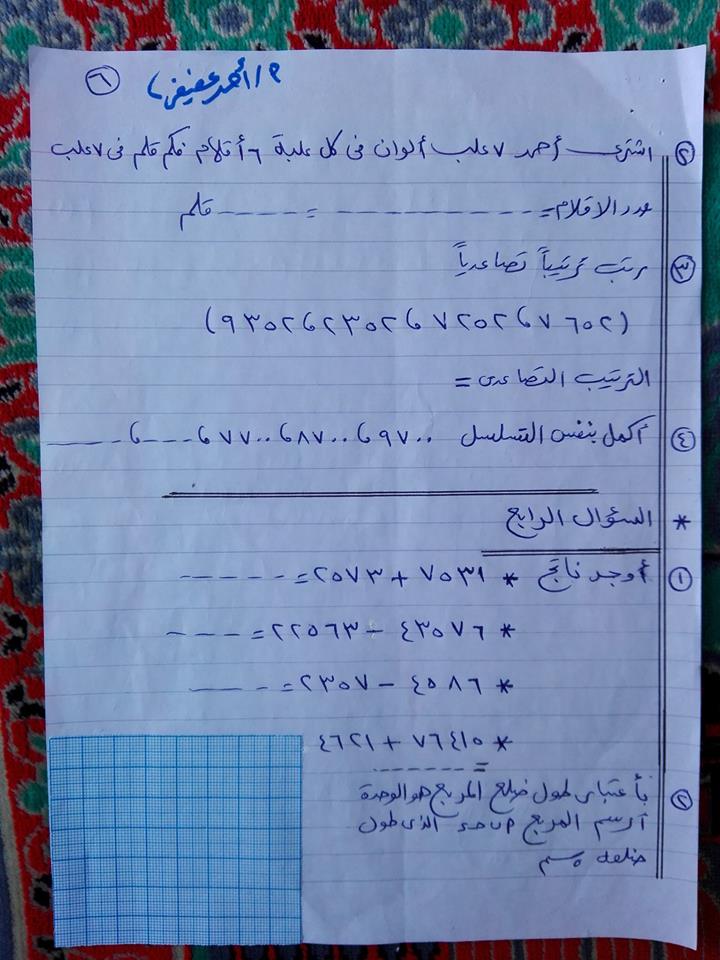 ٦
م/أحمد عفيفى
٢ اشترى أحمد ٧ علب ألوان فى كل علبة ٦ أقلام فكم قلم فى ٧ علب
عدد الاقلام = ---------- = ----- قلم
٣ رتب ترتيباً تصاعدياً
(٧٦٥٢ ، ٧٢٥٢ ، ٢٣٥٢ ، ٩٣٥٢)
الترتيب التصاعدى =
٤ أكمل بنفس التسلسل ٩٧٠٠ ، ٨٧٠٠ ، ٧٧٠٠ ، ---- ، ----
* السؤال الرابع
١ أوجد ناتج * ٧٥٣١ + ٢٥٧٣ = -----
* ٤٣٥٧٦ - ٢٢٥٦٣ = ----
* ٤٥٨٦ - ٢٣٥٧ = ----
* ٧٦٤١٥ + ٤٦٢١
= --------
٢ بأعتبار طول ضلع المربع هو الوحدة
أرسم المربع الذى طول
ضلعه ٥ سم